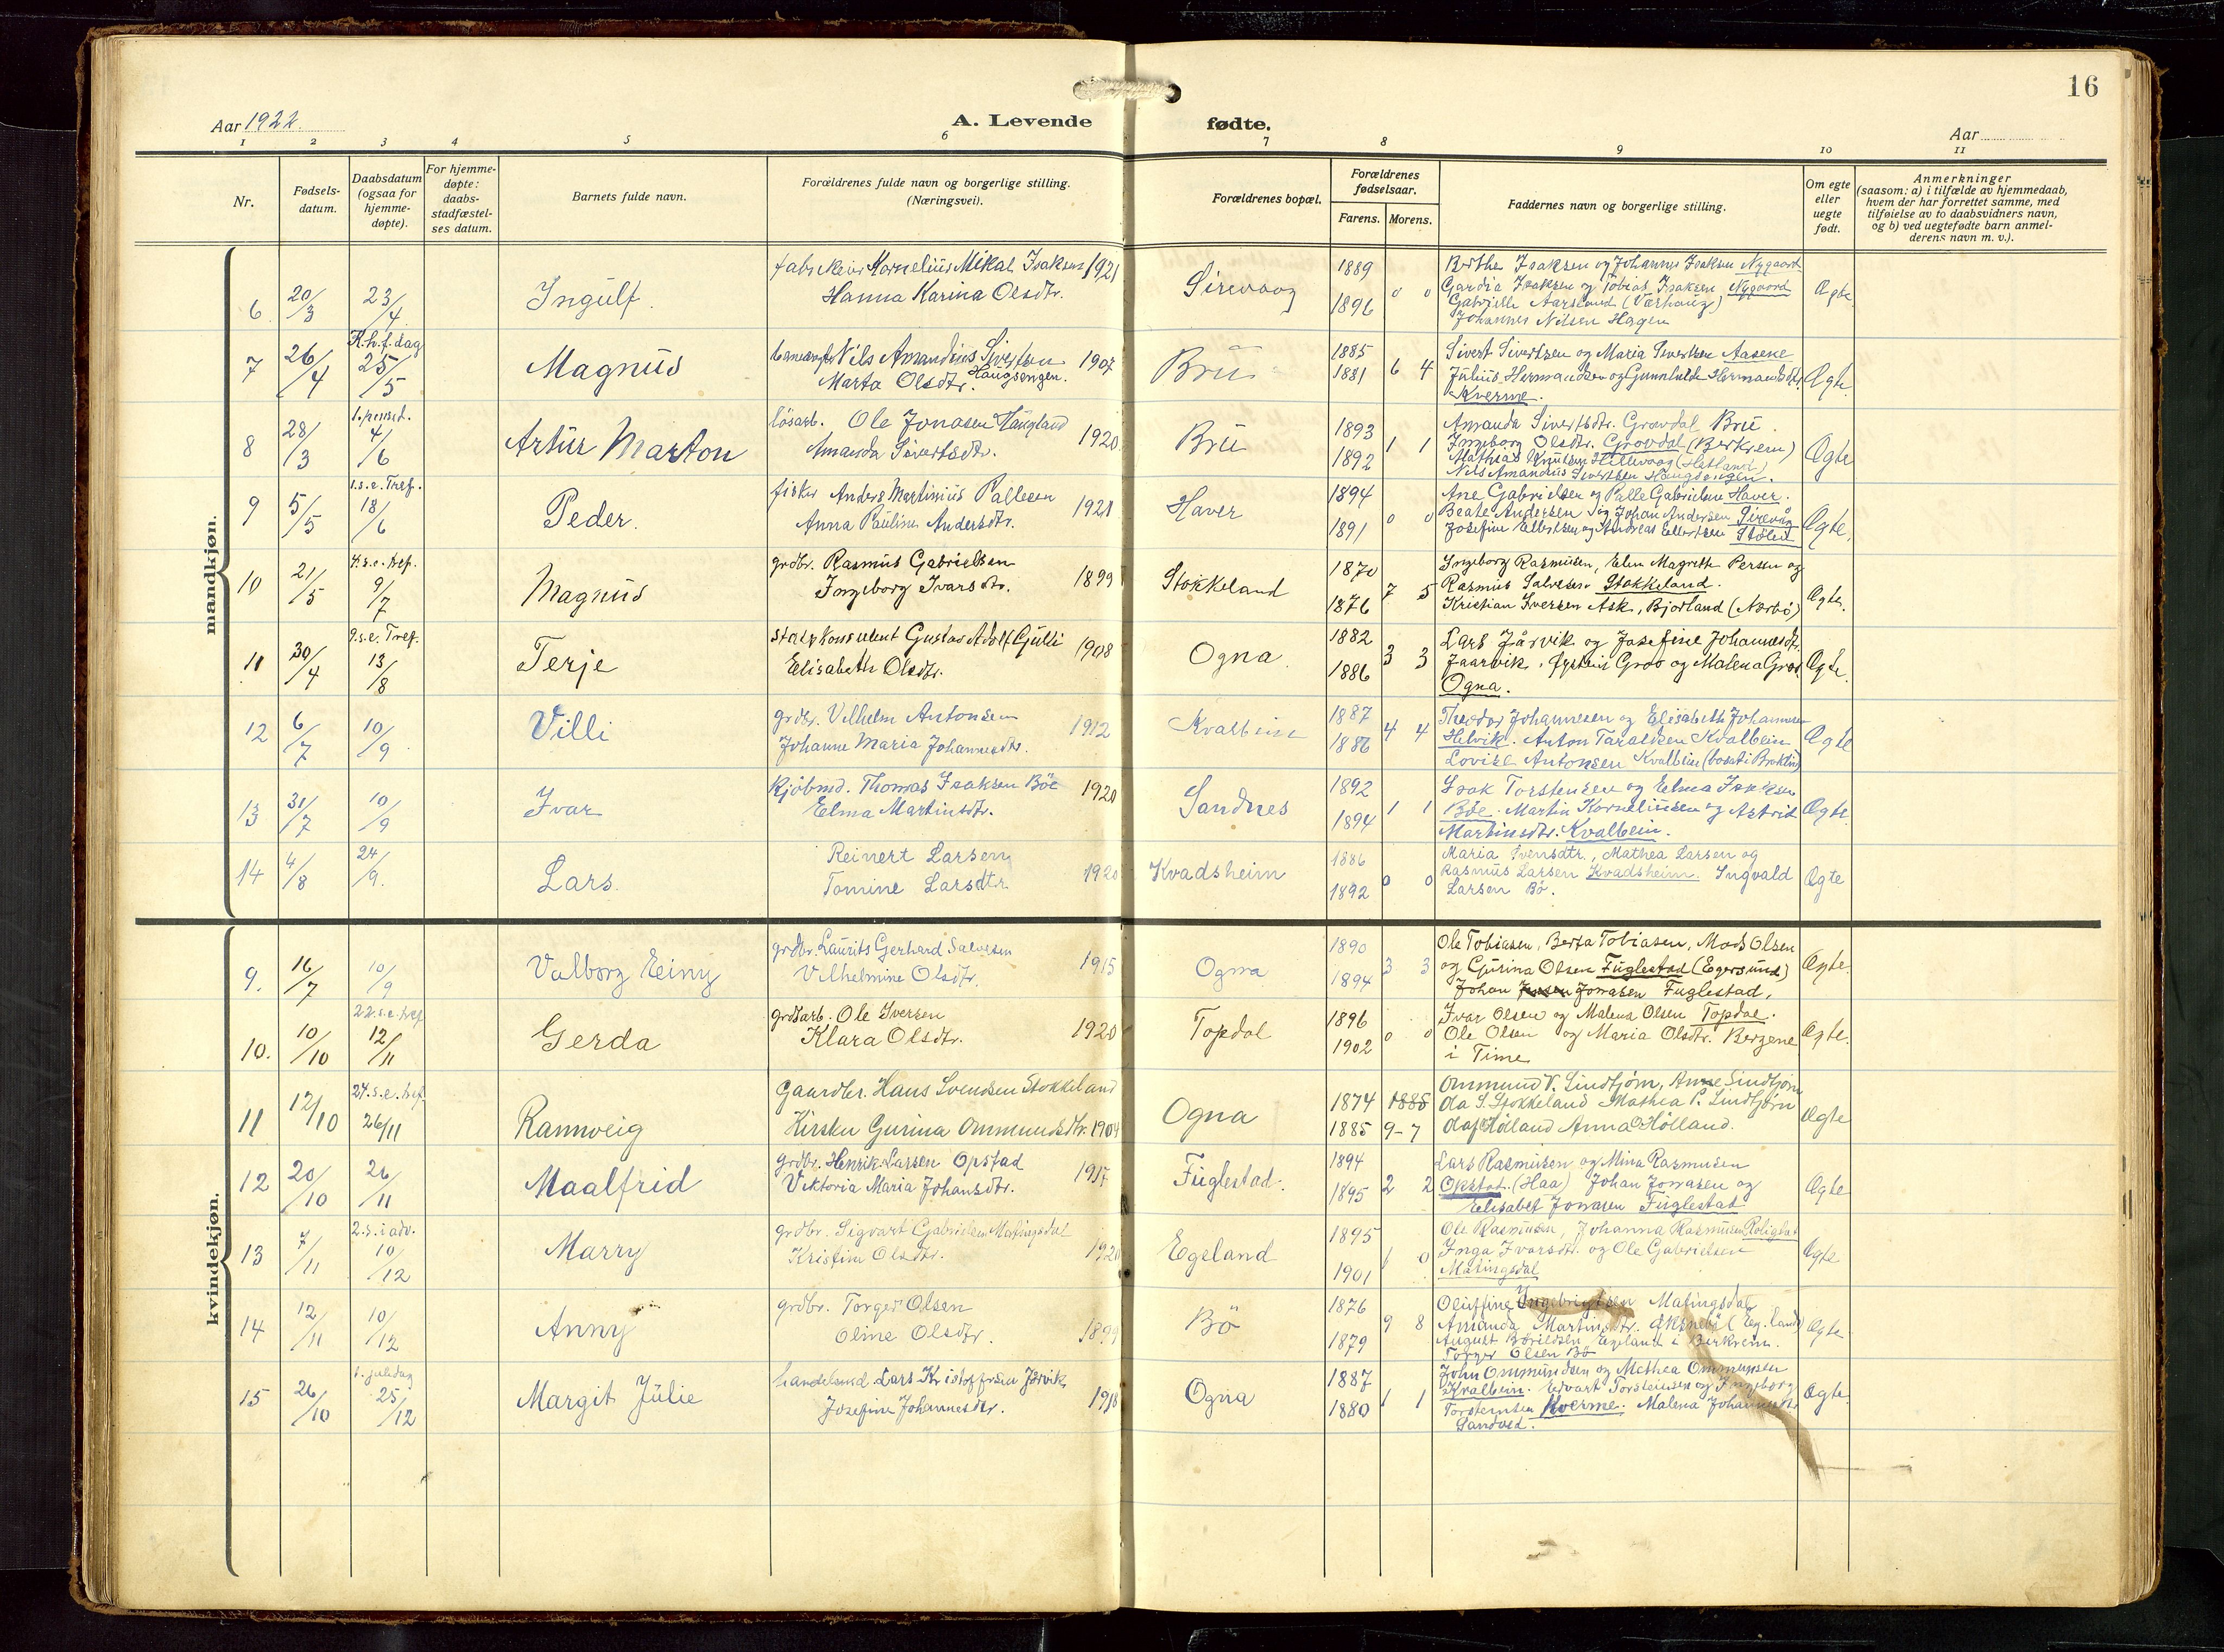 16
Aar 1922.
A. Levende fødte.
Aar
1 2 3 4 5 6 7 8 9 10 11
Nr.
Fødsels-
datum.
Daabsdatum
(ogsaa for
hjemme-
døpte).
For hjemme-
døpte:
daabs-
stadfæstel-
ses datum.
Barnets fulde navn.
Forældrenes fulde navn og borgerlige stilling.
(Næringsvei).
Forældrenes bopæl.
Forældrenes
fødselsaar.
Farens. Morens.
Faddernes navn og borgerlige stilling.
Om egte
eller
uegte
født.
Anmerkninger
(saasom: a) i tilfælde av hjemmedaab,
hvem der har forrettet samme, med
tilføielse av to daabsvidners navn,
og b) ved uegtefødte barn anmel-
derens navn m. v.).
mandkjøn.
6 20/3 23/4 Ingulf.
Kornelius Mikal Isaksen 1921
Hanna Karina Olsdtr.
Sirevaag
1889
1896
0 0
Berthe Isaksen og Johannes Isaksen Nygaard
Gardia Isaksen og Tobias Isaksen Nygaard
Gabrielle Aarsland (Varhaug)
Johannes Nilsen Hagen
Ægte
7 26/4 K.h.f.dag 25/5 Magnus
Nils Amandius Sivertsen 1907
Marta Olsdtr. Haugsengen.
Bru
1885
1881
6 4
Sivert Sivertsen og Maria Sivertsen Aasene
Julius Hermandsen og Gunnhilde Hermandsdtr.
Kverme.
Ægte.
8 28/3 1. pinsed. 4/6 Artur Marton
løsarb. Ole Jonasen Haugland 1920
Amanda Sivertsdtr.
Bru
1893
1892
1 1
Amanda Sivertsdtr. Gravdal Bru.
Ingeborg Olsdtr. Gravdal (Berkrem)
Mathias Knutsen Hellevaag (Hetland)
Nils Amandius Sivertsen Haugsengen.
Ægte
9 5/5 1.s.e.Tref. 18/6 Peder.
fisker Anders Martinius Pallesen 1921
Anna Pauline Andersdtr.
Haver
1894
1891
0 0
Ane Gabrielsen og Palle Gabrielsen Haver.
Beate Andersen og Johan Andersen Sirevåg
Josefine Ellertsen og Andreas Ellertsen Stølen
Ægte.
10 21/5 4.s.e.tref. 9/7 Magnus
grdbr. Rasmus Gabrielsen 1899
Ingeborg Ivarsdtr.
Stokkeland
1870
1876
7 5
Ingeborg Rasmusen, Elen Magrethe Persen og
Rasmus Salvesen Stokkeland.
Kristian Iversen Ask, Bjorland (Nærbø)
Ægte.
11 30/4 9.s.e.Tref. 13/8 Terje
statskonsulent Gustav Adolf Gjulli 1908
Elisabeth Olsdtr.
Ogna.
1882
1886
3 3
Lars Jårvik og Josefine Johannesdtr.
Jaarvik, Øystein Grov og Malena Grov
Ogna.
Ægte.
12 6/7 10/9 Villi
grdbr. Vilhelm Antonsen 1912
Johanne Maria Johannesdtr.
Kvalbein
1887
1886
4 4
Theodor Johannesen og Elisabeth Johannesen
Helvik. Anton Taraldsen Kvalbein
Lovise Antonsen Kvalbein (bosat i Broklin)
Ægte
13 31/7 10/9 Ivar
Kjøbmd. Thomas Isaksen Bøe 1920
Elma Martinsdtr.
Sandnes
1892
1894
1 1
Isak Torstensen og Elma Isaksen
Bøe. Martin Korneliusen og Astrid
Martinsdtr. Kvalbein.
Ægte.
14 4/8 24/9. Lars.
Reinert Larsen 1920
Tomine Larsdtr.
Kvadsheim
1886
1892
0 0
Maria Svensdtr., Mathea Larsen og
Rasmus Larsen Kvadsheim. Ingvald
Larsen Bø.
Ægte
kvindekjøn.
9. 16/7 10/9 Valborg Einy
grdbr. Laurits Gerhard Salvesen 1915
Vilhelmine Olsdtr.
Ogna
1890
1894
3 3
Ole Tobiasen, Berta Tobiasen, Mads Olsen
og Gurina Olsen Fuglestad (Egersund)
Johan Jonasen Fuglestad.
Ægte.
10. 10/10 22.s.e.tref 12/11 Gerda
grdsarb. Ole Iversen 1920
Klara Olsdtr.
Topdal
1896
1902
0 0
Ivar Olsen og Malena Olsen Topdal.
Ole Olsen og Maria Olsdtr. Bergene
i Time
Ægte.
11 12/10 24.s.e.tref. 26/11 Rannveig
Gaardbr. Hans Svendsen Stokkeland
Kirsten Gurina Ommundsdtr. 1904
Ogna
1874 1885
1885 9-7
Ommund V. Lindtjørn, Anne Lindtjørn
Oda S. Stokkeland Mathea P. Lindtjørn
Olaf Hølland Anna Hølland.
Ægte
12 20/10 26/11 Maalfrid
grdbr. Henrik Larsen Opstad 1917
Viktoria Maria Johansdtr.
Fuglestad.
1894
1895
2 2
Lars Rasmusen og Mina Rasmusen
Opstad. (Haa) Johan Jonasen og
Elisabet Jonasen Fuglestad
Ægte
13 7/11 2.s.i adv. 10/12 Marry
grdbr. Sigvart Gabrielsen Matingsdal 1920
Kristine Olsdtr.
Egeland
1895
1901
1 0
Ole Rasmusen, Johanna Rasmusen Roligstad
Inga Ivarsdtr. og Ole Gabrielsen
Matingsdal
Ægte
14 12/11 10/12 Anny
grdbr. Torger Olsen 1899
Oline Olsdtr.
Bø
1876
1879
9 8
Oluffine Ingebrigtsen Matingsdal
Amanda Martinsdtr. Øksnebøl (Eg. land)
August Bårdsen Egeland i Berkrem.
Torger Olsen Bø
Ægte
15 26/10 1. juledag 25/12 Margit Julie
handelsmd Lars Kristoffersen Jårvik 1918
Josefine Johannesdtr.
Ogna
1887
1880
1 1
John Ommundsen og Mathea Ommunsen
Kvalbein. Edvart Torsteinsen og Ingeborg
Torsteinsen Kverme. Malena Johannesdtr
Sandved.
Ægte.